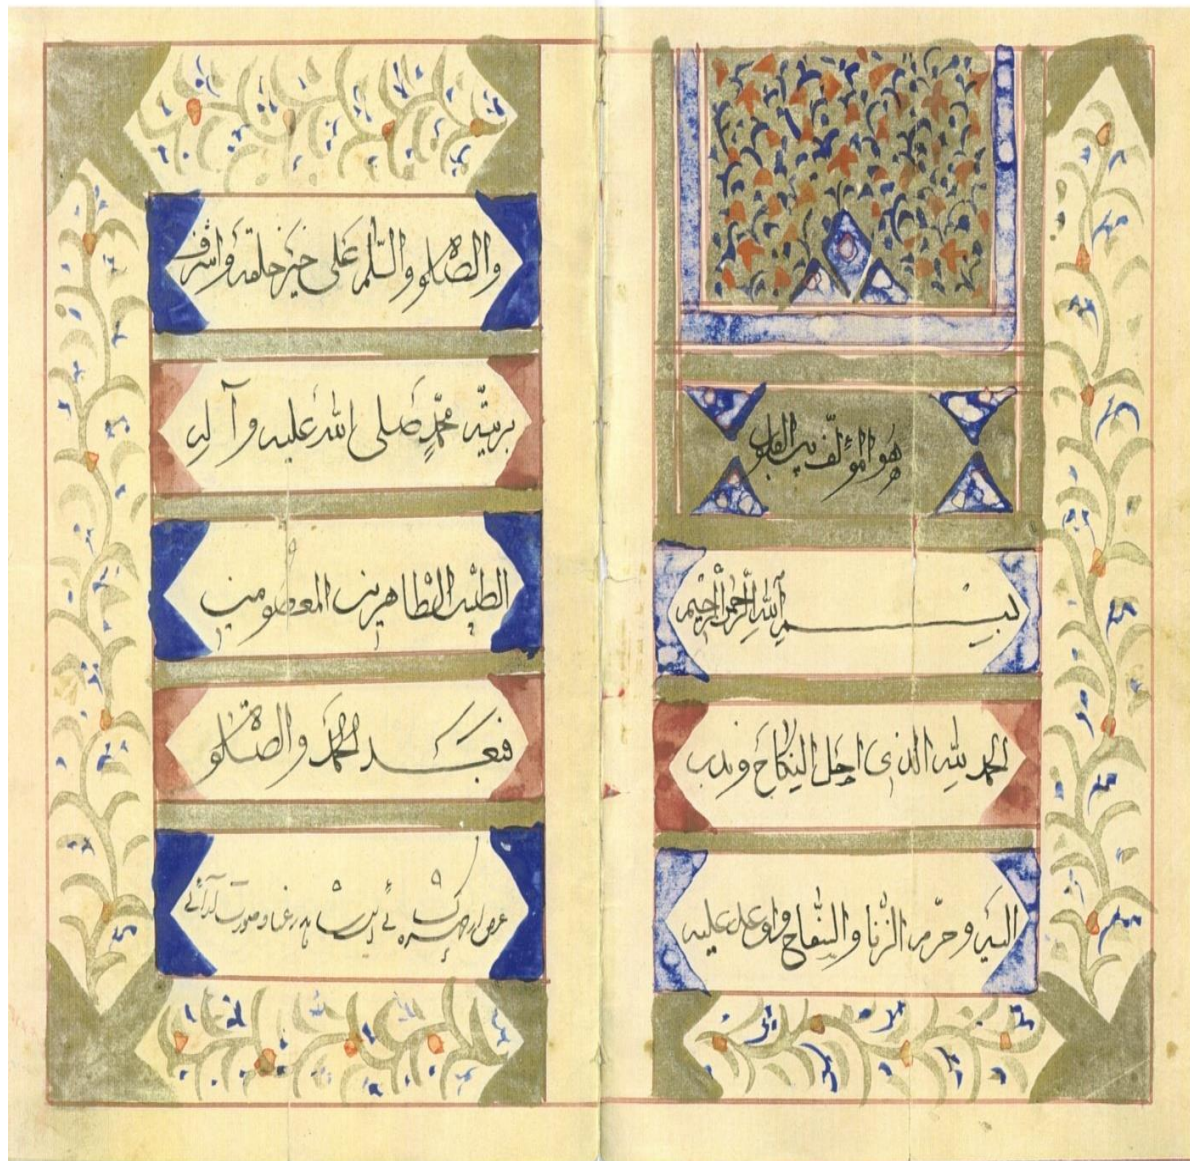 هُو المؤلّف بین القلوب
بِسْمِ اللهِ الرَّحمٰنِ الرَّحِیم
الحمد لله الذی احل النِکاحَ وندب
الیَه وحرّم الزّنا والسّفاح واوعد علیه
والصّلوة والسّلم عَلی خیَر خلقه وَاشرف
بریّته محمّدٍ صَلی اللهُ علیه وآله
الطیّبین الطّاهرین المعصومین
فبَعَد الحَمد والصّلوة
عرض از